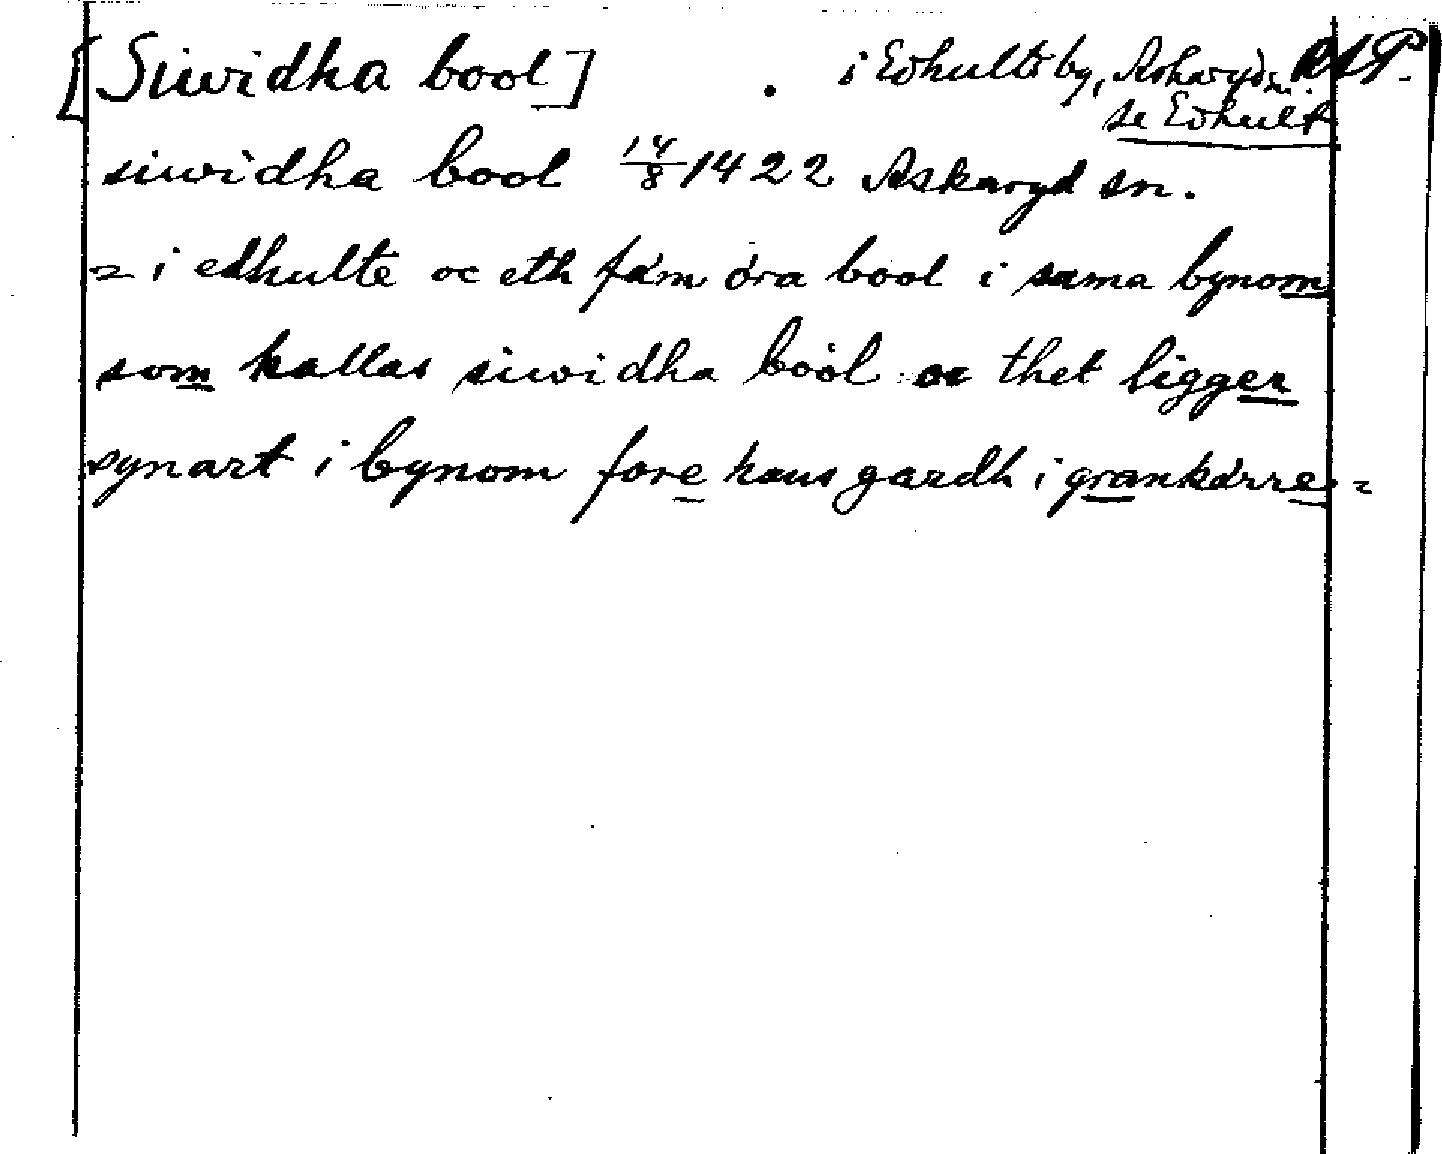 [Siwidha bool] . i Edhults by, Askeryds sn. RAP.
se Edhult
siwidha bool 14/8 1422 Askeryd sn.
= i edhulte oc eth fäm öra bool i sama bynom
som kallas siwidha bool oc thet ligger
synart i bynom fore hans gardh i grankärre =